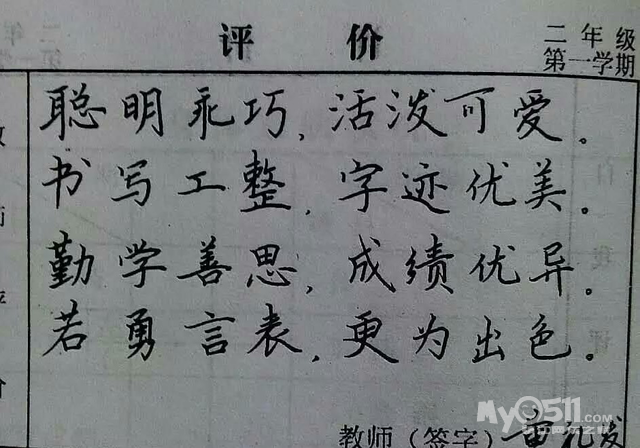 评价
二年级
第一学期
聪明乖巧，活泼可爱。
书写工整，字迹优美。
勤学善思，成绩优异。
若勇言表，更为出色。
教师（签字）
My0511.com